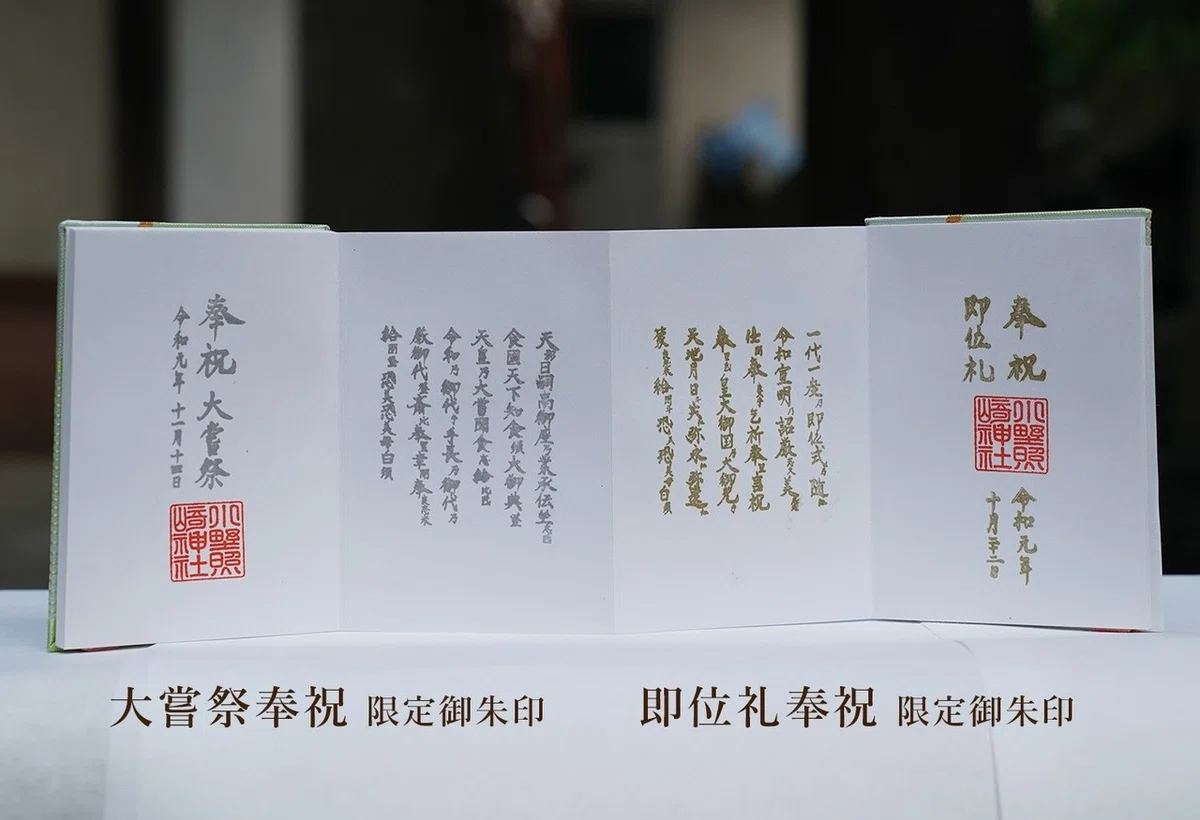 奉祝
即位礼
小野照
崎神社
令和元年
十月二十二日
一代一度乃即位式乃随
令和宣明乃詔厳美
仕奉乎祈奉里言祝
奉皇大御国乃大御光
天地月日共弥永弥遠
給恐恐白須
天日嗣高御座乃業承伝坐
食国天下知食須大御典登
天皇乃大嘗聞食志給比
令和乃御代乎手長乃御代乃
厳御代登斎比奉里幸閉奉良志米
給閉登恐美恐美毎白須
奉祝大嘗祭
令和元年十一月十四日
小野照
崎神社
大嘗祭奉祝 限定御朱印
即位礼奉祝 限定御朱印